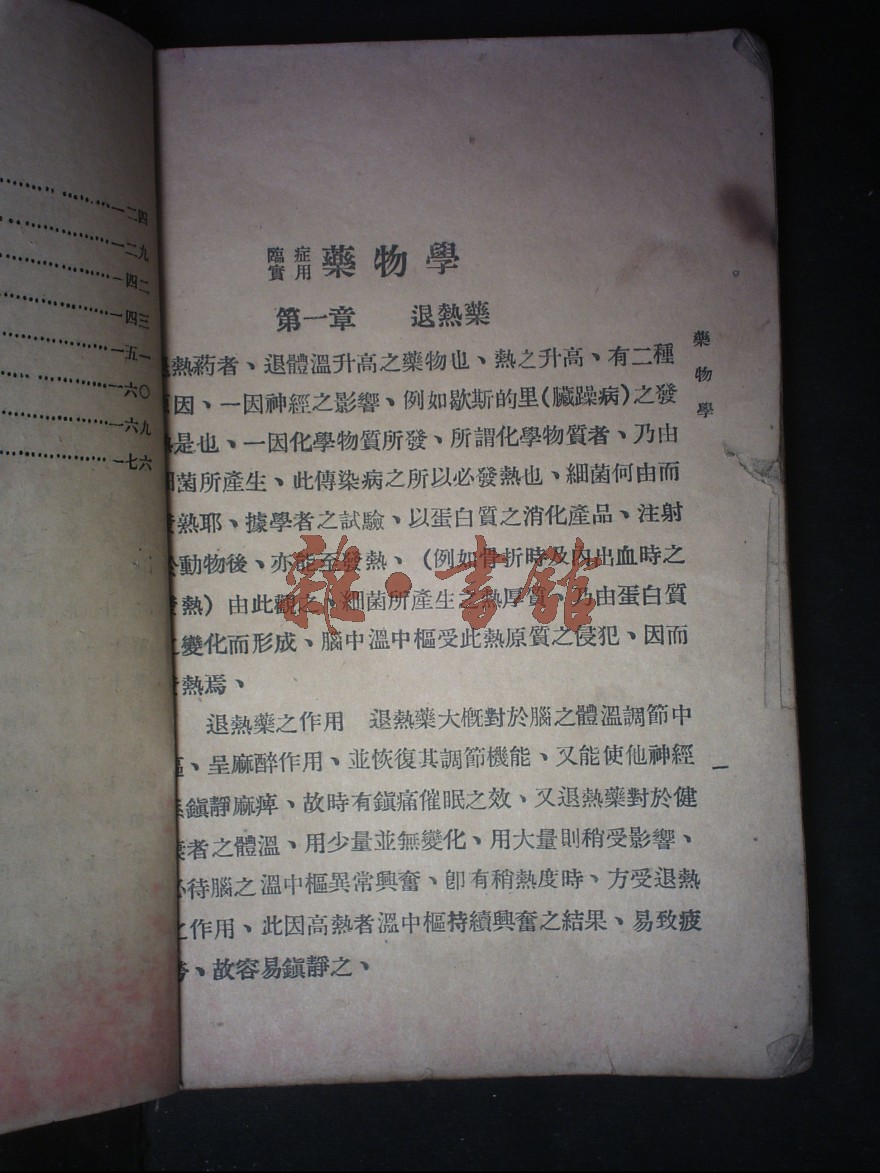 一二四
一二九
一四二
一四三
一五一
一六〇
一六九
一七六
臨症實用 藥物學
第一章 退熱藥
退熱葯者、退體溫升高之藥物也、熱之升高、有二種
原因、一因神經之影響、例如歇斯的里(臟躁病)之發
熱是也、一因化學物質所發、所謂化學物質者、乃由
細菌所產生、此傳染病之所以必發熱也、細菌何由而
發熱耶、據學者之試驗、以蛋白質之消化產品、注射
於動物後、亦能至發熱、(例如骨折時及內出血時之
發熱)由此觀之、細菌所產生之熱厚質、乃由蛋白質
之變化而形成、腦中溫中樞受此熱原質之侵犯、因而
發熱焉、
退熱藥之作用 退熱藥大槪對於腦之體溫調節中
樞、呈麻醉作用、並恢復其調節機能、又能使他神經
系鎭靜麻痺、故時有鎭痛催眠之效、又退熱藥對於健
康者之體溫、用少量並無變化、用大量則稍受影響、
必待腦之溫中樞異常興奮、卽有稍熱度時、方受退熱
之作用、此因高熱者溫中樞持續興奮之結果、易致疲
勞、故容易鎭靜之、
藥物學
一
雜·書館